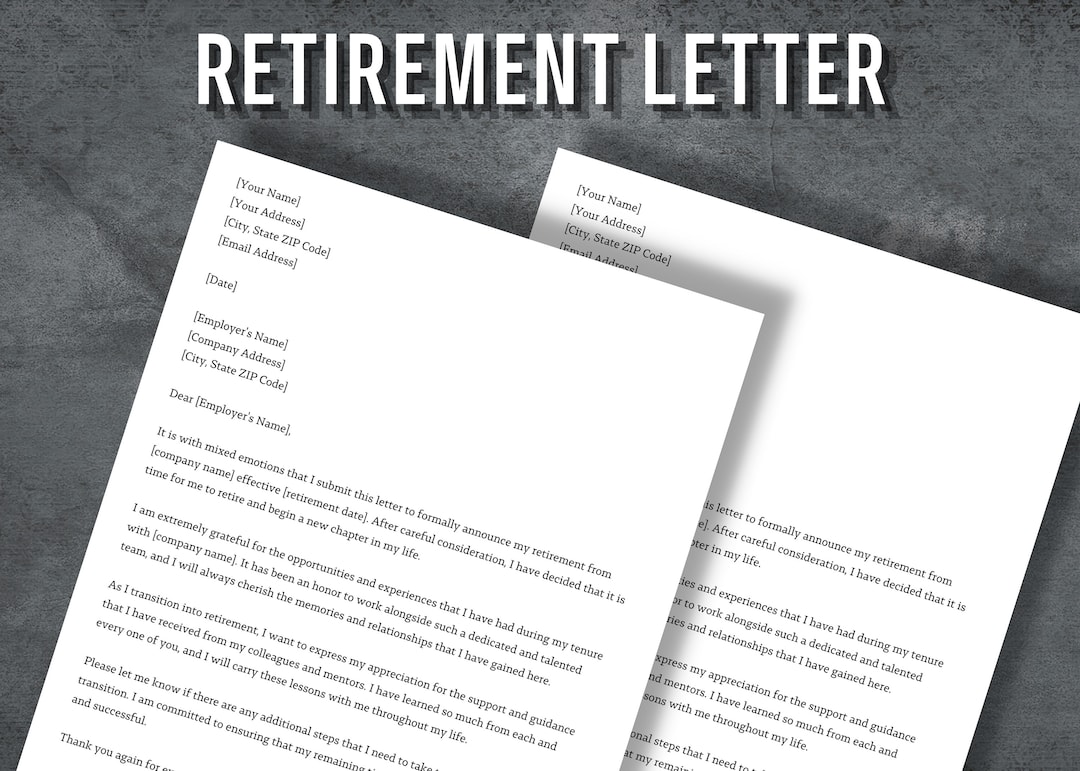 RETIREMENT LETTER
[Your Name]
[Your Address]
[City, State ZIP Code]
[Email Address]
[Date]
[Employer's Name]
[Company Address]
[City, State ZIP Code]
Dear [Employer's Name],
It is with mixed emotions that I submit this letter to formally announce my retirement from
[company name] effective [retirement date]. After careful consideration, I have decided that it is
time for me to retire and begin a new chapter in my life.
I am extremely grateful for the opportunities and experiences that I have had during my tenure
with [company name]. It has been an honor to work alongside such a dedicated and talented
team, and I will always cherish the memories and relationships that I have gained here.
As I transition into retirement, I want to express my appreciation for the support and guidance
that I have received from my colleagues and mentors. I have learned so much from each and
every one of you, and I will carry these lessons with me throughout my life.
Please let me know if there are any additional steps that I need to take
transition. I am committed to ensuring that my remaining
and successful.
Thank you again for
[Your Name]
[Your Address]
[City, State ZIP Code]
[Email Address]
is letter to formally announce my retirement from
After careful consideration, I have decided that it is
in my life.
and experiences that I have had during my tenure
to work alongside such a dedicated and talented
and relationships that I have gained here.
express my appreciation for the support and guidance
and mentors. I have learned so much from each and
with me throughout my life.
steps that I need to
at my